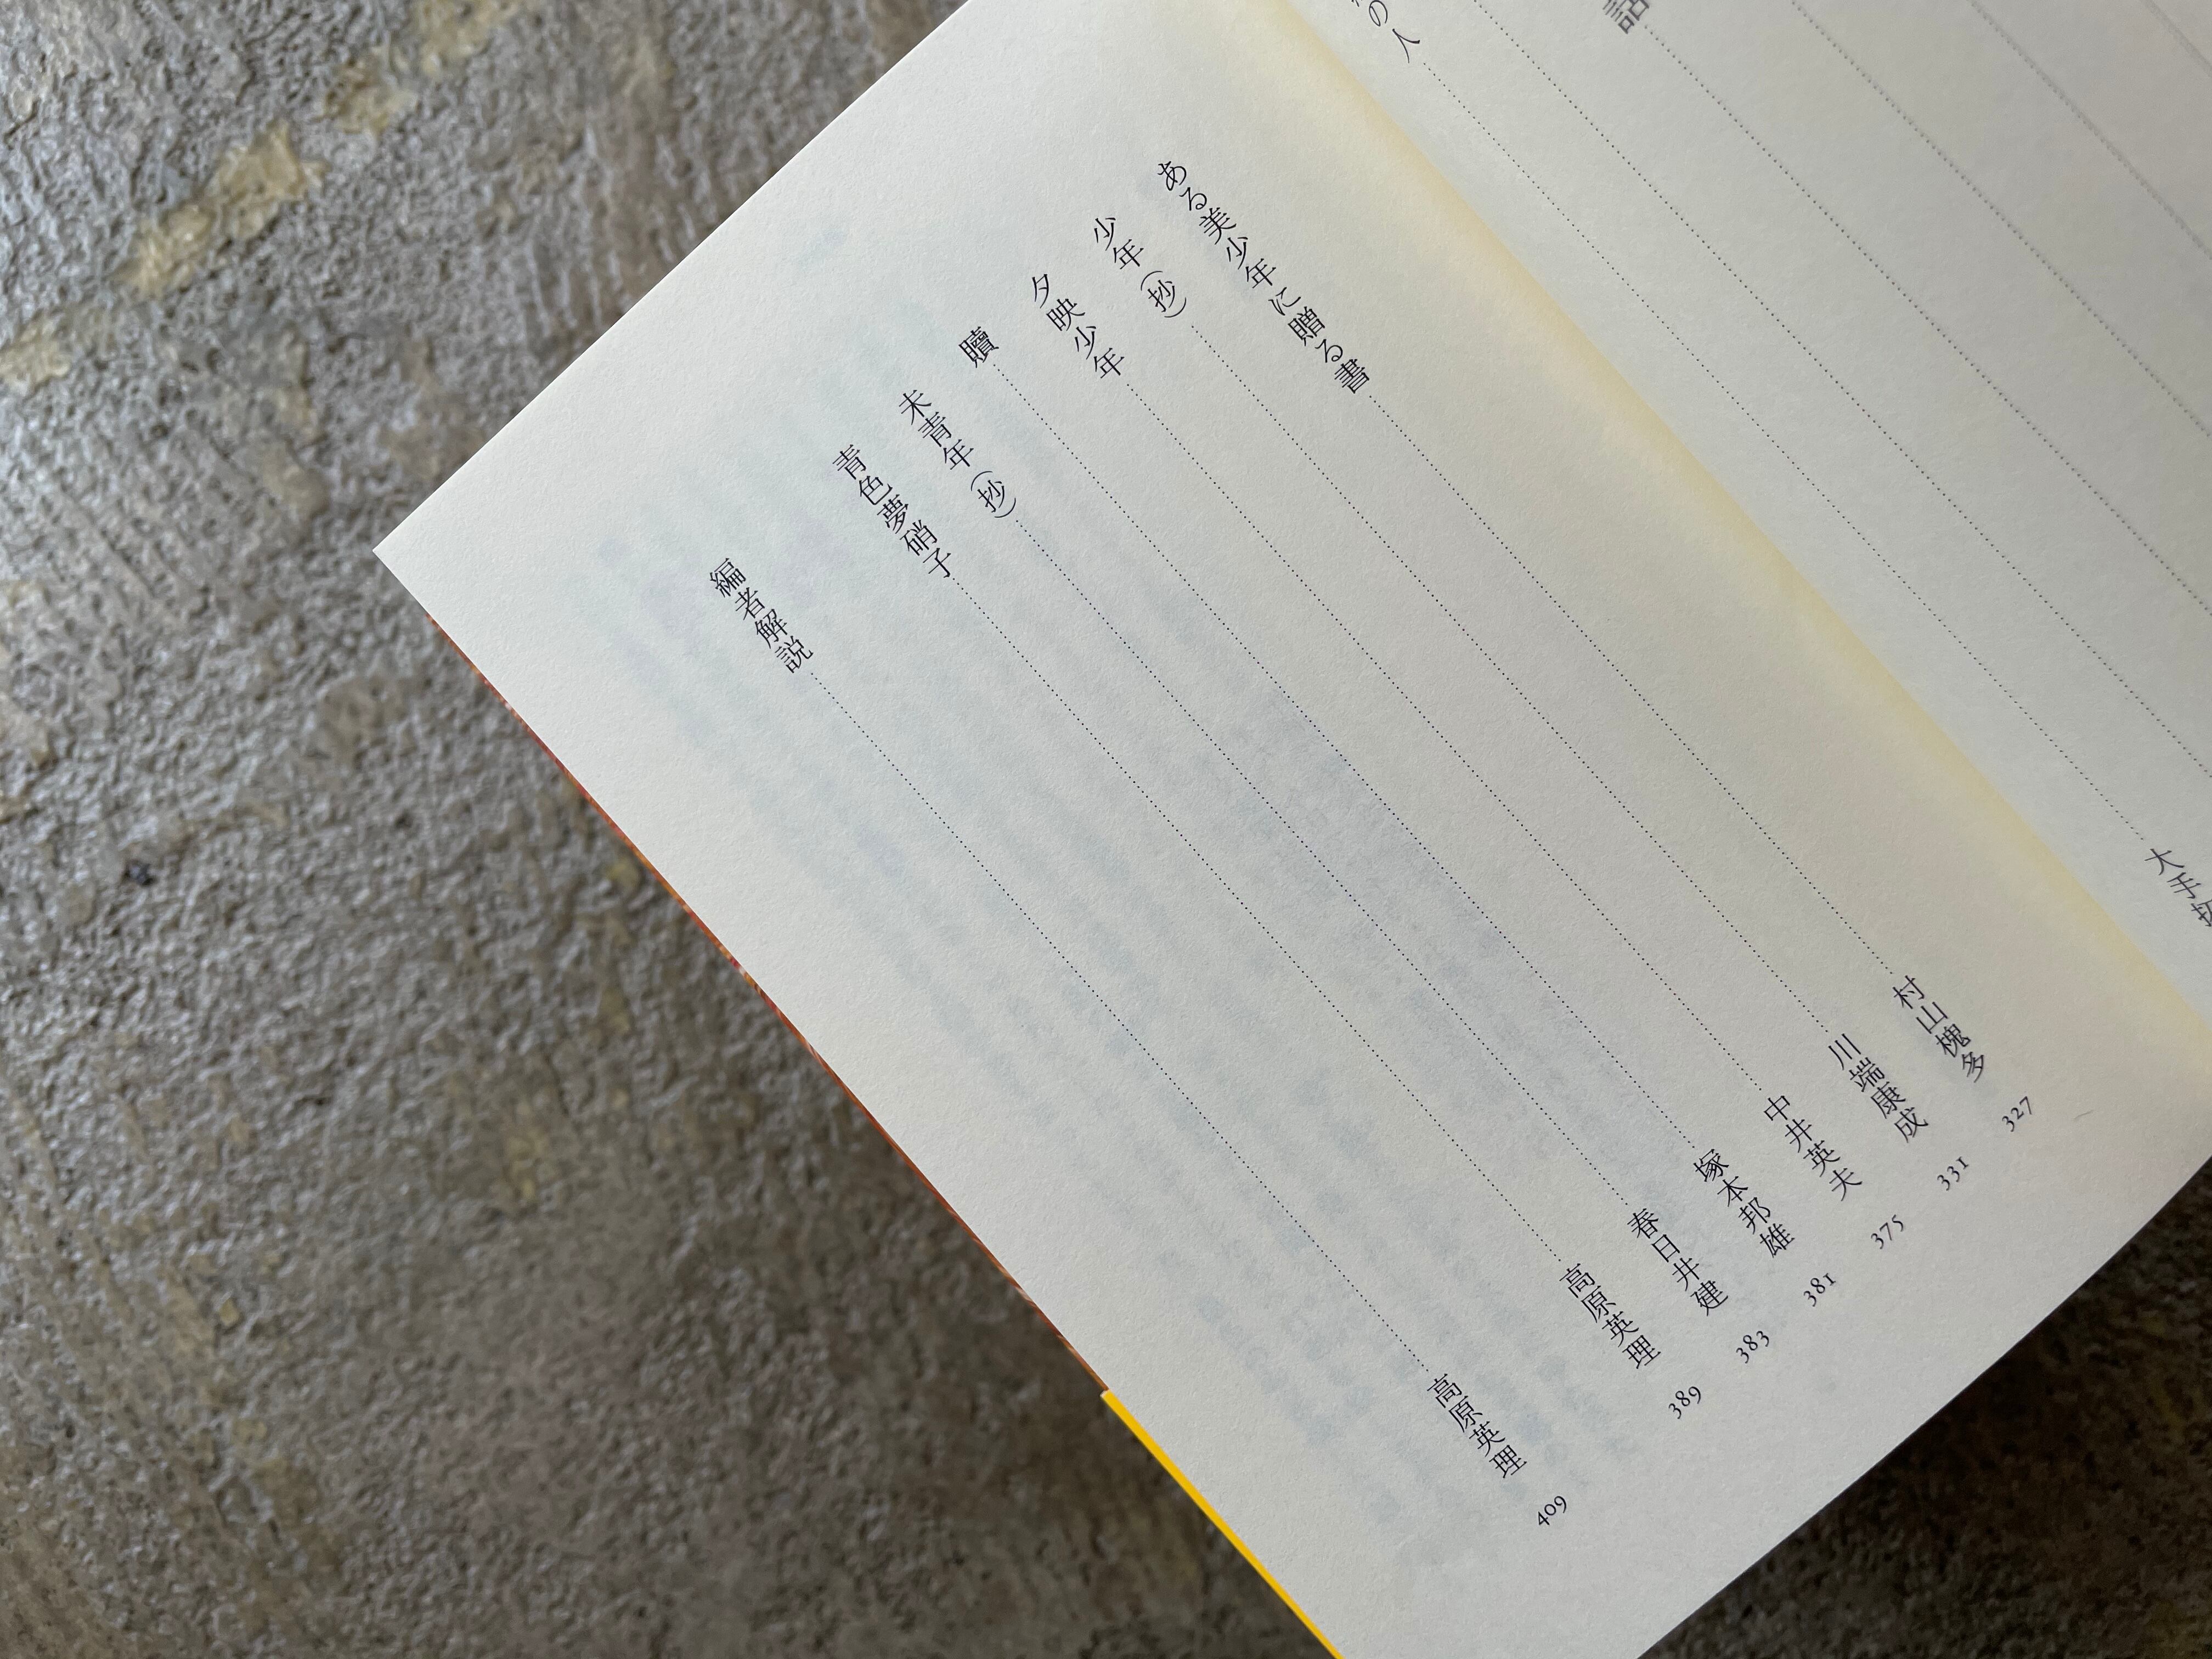 の人
話
大手
ある美少年に贈る書 村山槐多 327
少年(抄) 川端康成 331
夕映少年 中井英夫 375
贖 塚本邦雄 381
未青年(抄) 春日井建 383
青色夢硝子 高原英理 389
編者解説 高原英理 409